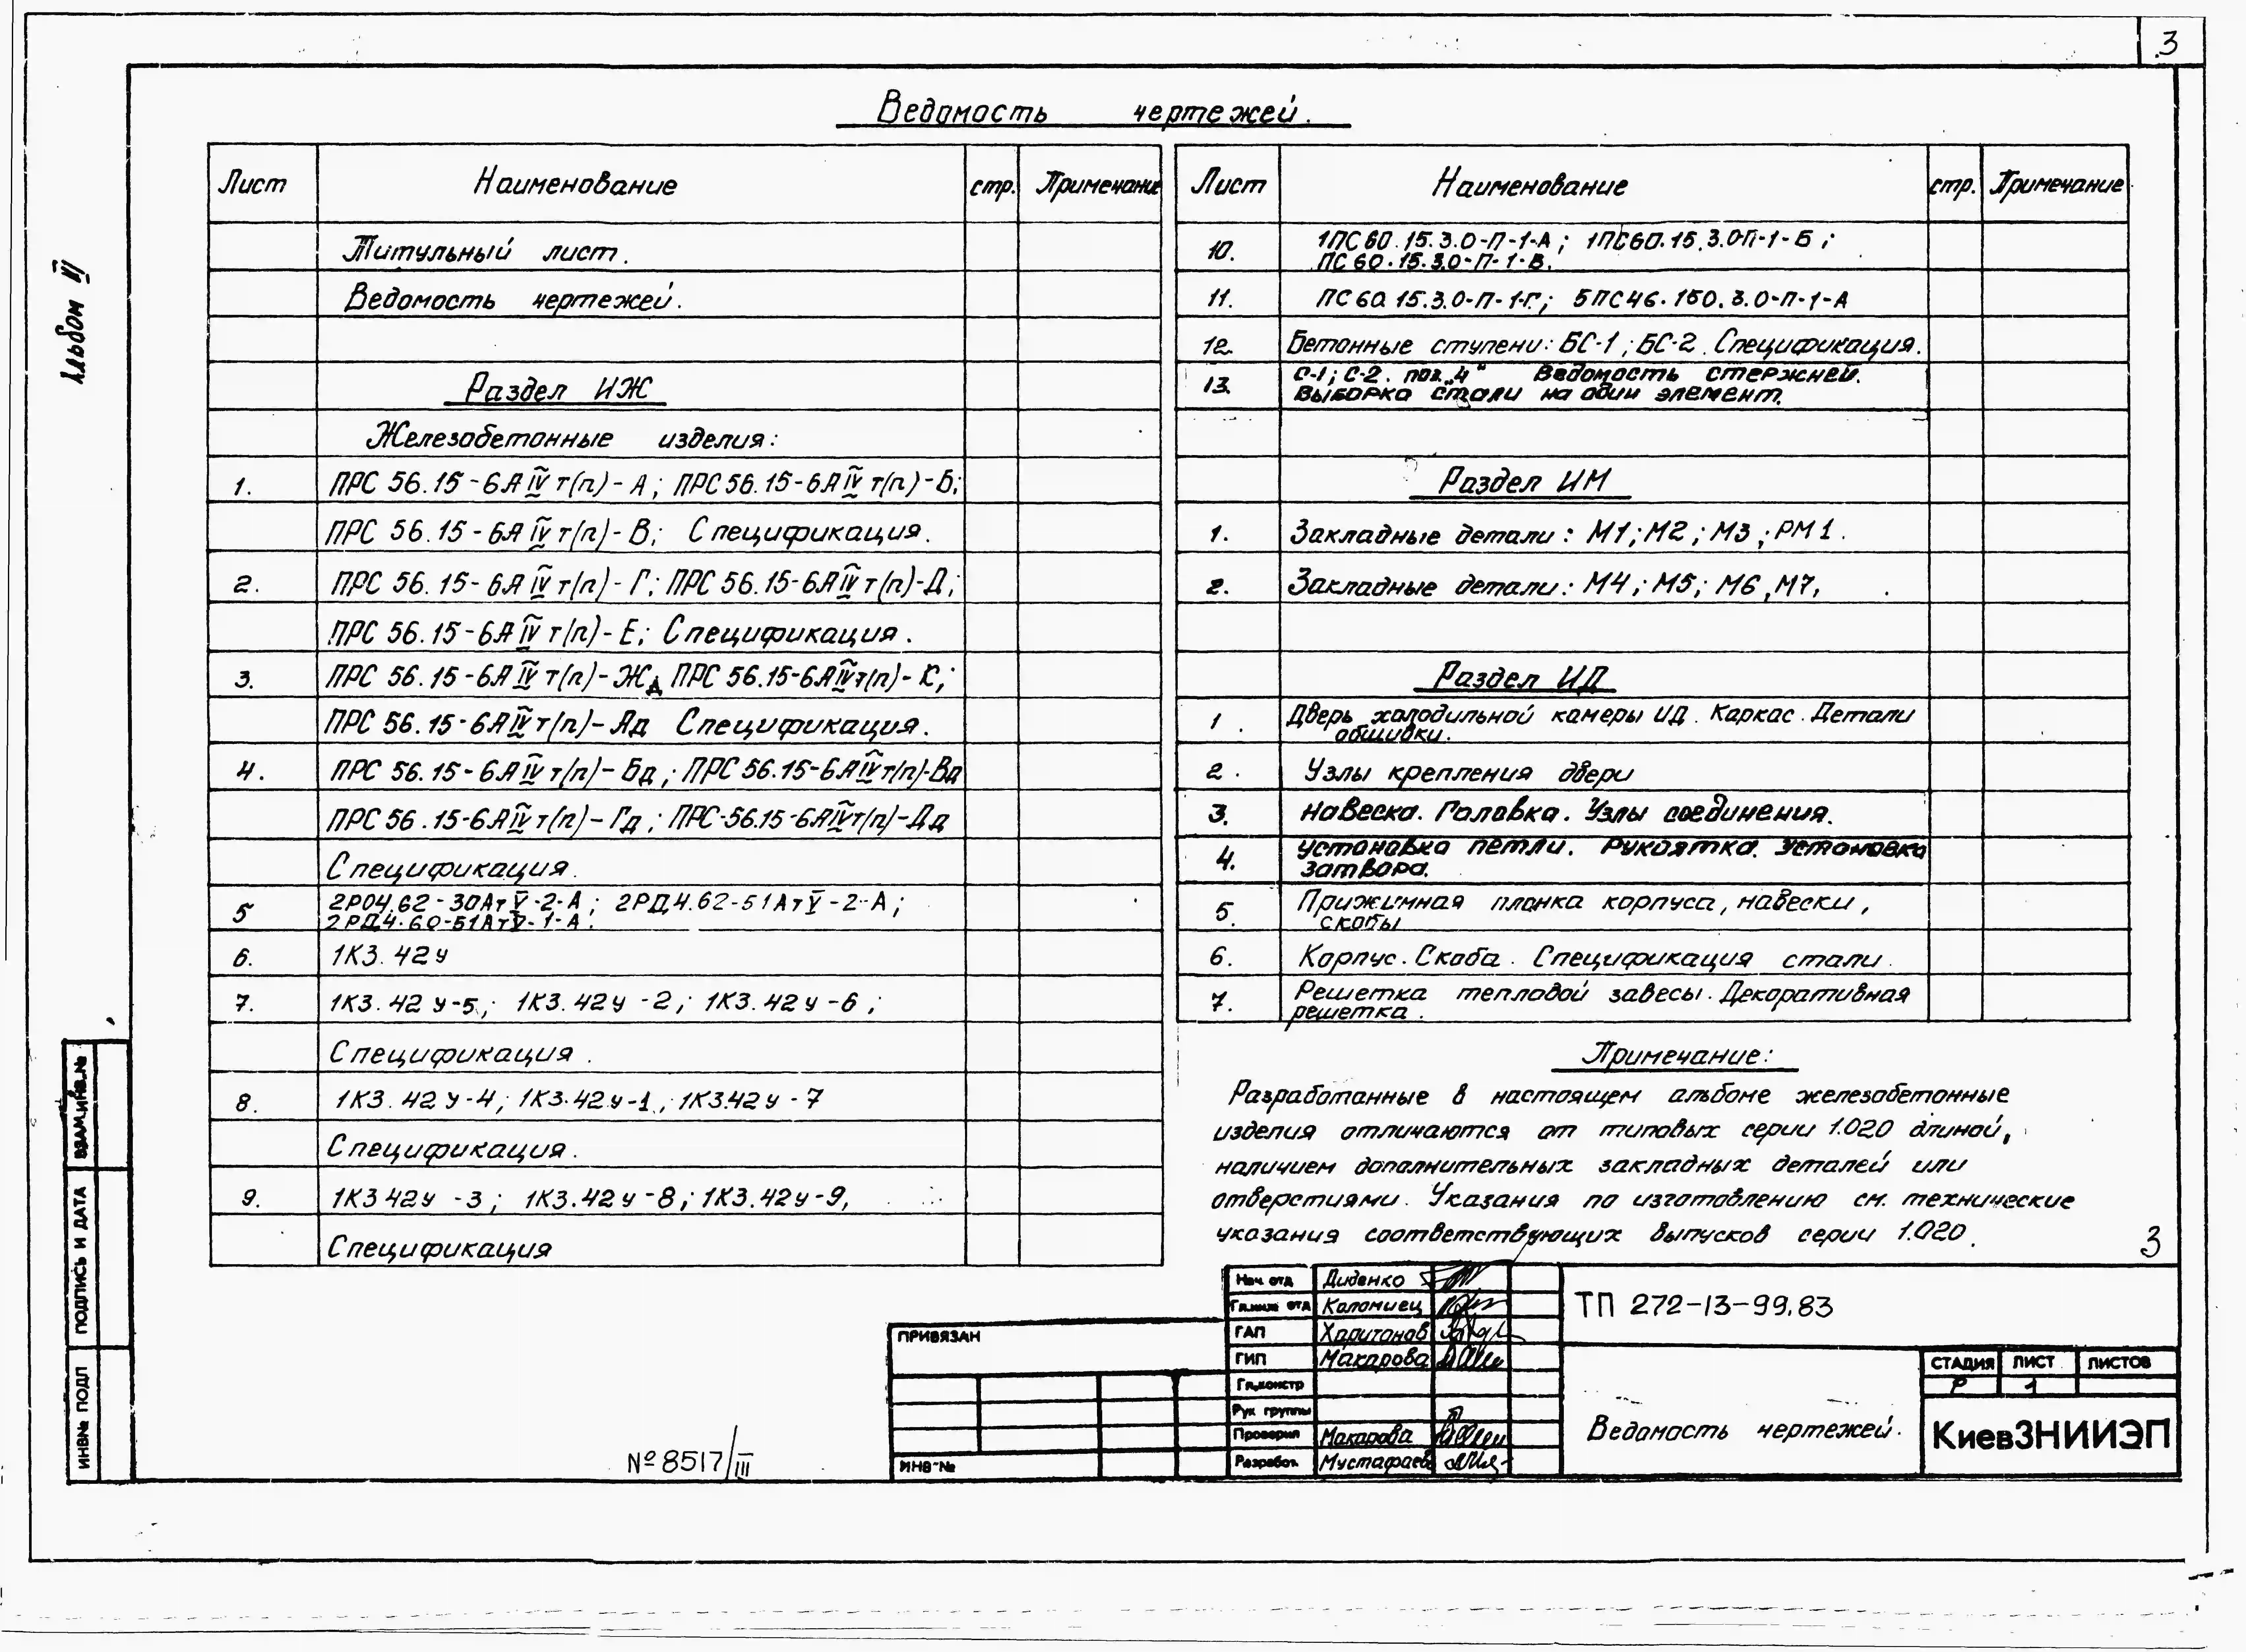 3
Ведомость чертежей.
Альбом VI
Лист Наименование стр. Примечание
Титульный лист.
Ведомость чертежей.
Раздел ИЖ
Железобетонные изделия:
1. ПРС 56.15-6АIVт(п)-А; ПРС 56.15-6АIVт(п)-Б;
ПРС 56.15-6АIVт(п)-В; Спецификация.
2. ПРС 56.15-6АIVт(п)-Г; ПРС 56.15-6АIVт(п)-Д;
ПРС 56.15-6АIVт(п)-Е; Спецификация.
3. ПРС 56.15-6АIVт(п)-Жд ПРС 56.15-6АIVт(п)-К;
ПРС 56.15-6АIVт(п)-Ад Спецификация.
4. ПРС 56.15-6АIVт(п)-Бд; ПРС 56.15-6АIVт(п)-Вд
ПРС 56.15-6АIVт(п)-Гд; ПРС-56.15-6АIVт(п)-Дд
Спецификация.
5 2Р04.62-30АтV-2-А; 2РД4.62-51АтV-2-А;
2РД4.60-51АтV-1-А.
6. 1К3.42у
7. 1К3.42у-5; 1К3.42у-2; 1К3.42у-6;
Спецификация.
8. 1К3.42у-4; 1К3.42у-1; 1К3.42у-7
Спецификация.
9. 1К3 42у-3; 1К3.42у-8; 1К3.42у-9,
Спецификация
Лист Наименование стр. Примечание
10. 1ПС60.15.3.0-П-1-А; 1ПС60.15.3.0-П-1-Б;
ПС60.15.3.0-П-1-В.
11. ПС60.15.3.0-П-1-Г; БПС46.150.3.0-П-1-А
12. Бетонные ступени: БС-1; БС-2. Спецификация.
13. С-1; С-2. поз. „4“ Ведомость стержней.
Выборка стали на один элемент.
Раздел ИМ
1. Закладные детали: М1; М2; М3; РМ1.
2. Закладные детали: М4; М5; М6, М7,
Раздел ИД
1. Дверь холодильной камеры ИД. Каркас. Детали
обшивки.
2. Узлы крепления двери
3. Навеска. Головка. Узлы соединения.
4. Установка петли. Рукоятка. Установка
затвора.
5. Прижимная планка корпуса, навески,
скобы
6. Корпус. Скоба. Спецификация стали.
7. Решетка тепловой завесы. Декоративная
решетка.
Примечание:
Разработанные в настоящем альбоме железобетонные
изделия отличаются от типовых серии 1.020 длиной,
наличием дополнительных закладных деталей или
отверстиями. Указания по изготовлению см. технические
указания соответствующих выпусков серии 1.020.
3
ВЗАМ.ИНВ.№
ПОДПИСЬ И ДАТА
ИНВ№ ПОДЛ
№8517/III
ПРИВЯЗАН
ИНВ-№
Нач. отд Диденко
Гл.инж. отд Коломиец
ГАП Харитонов
ГИП Макарова
Гл.констр
Рук группы
Проверил Макарова
Разработ. Мустафаева
ТП 272-13-99.83
Ведомость чертежей.
СТАДИЯ ЛИСТ ЛИСТОВ
Р 1
КиевЗНИИЭП